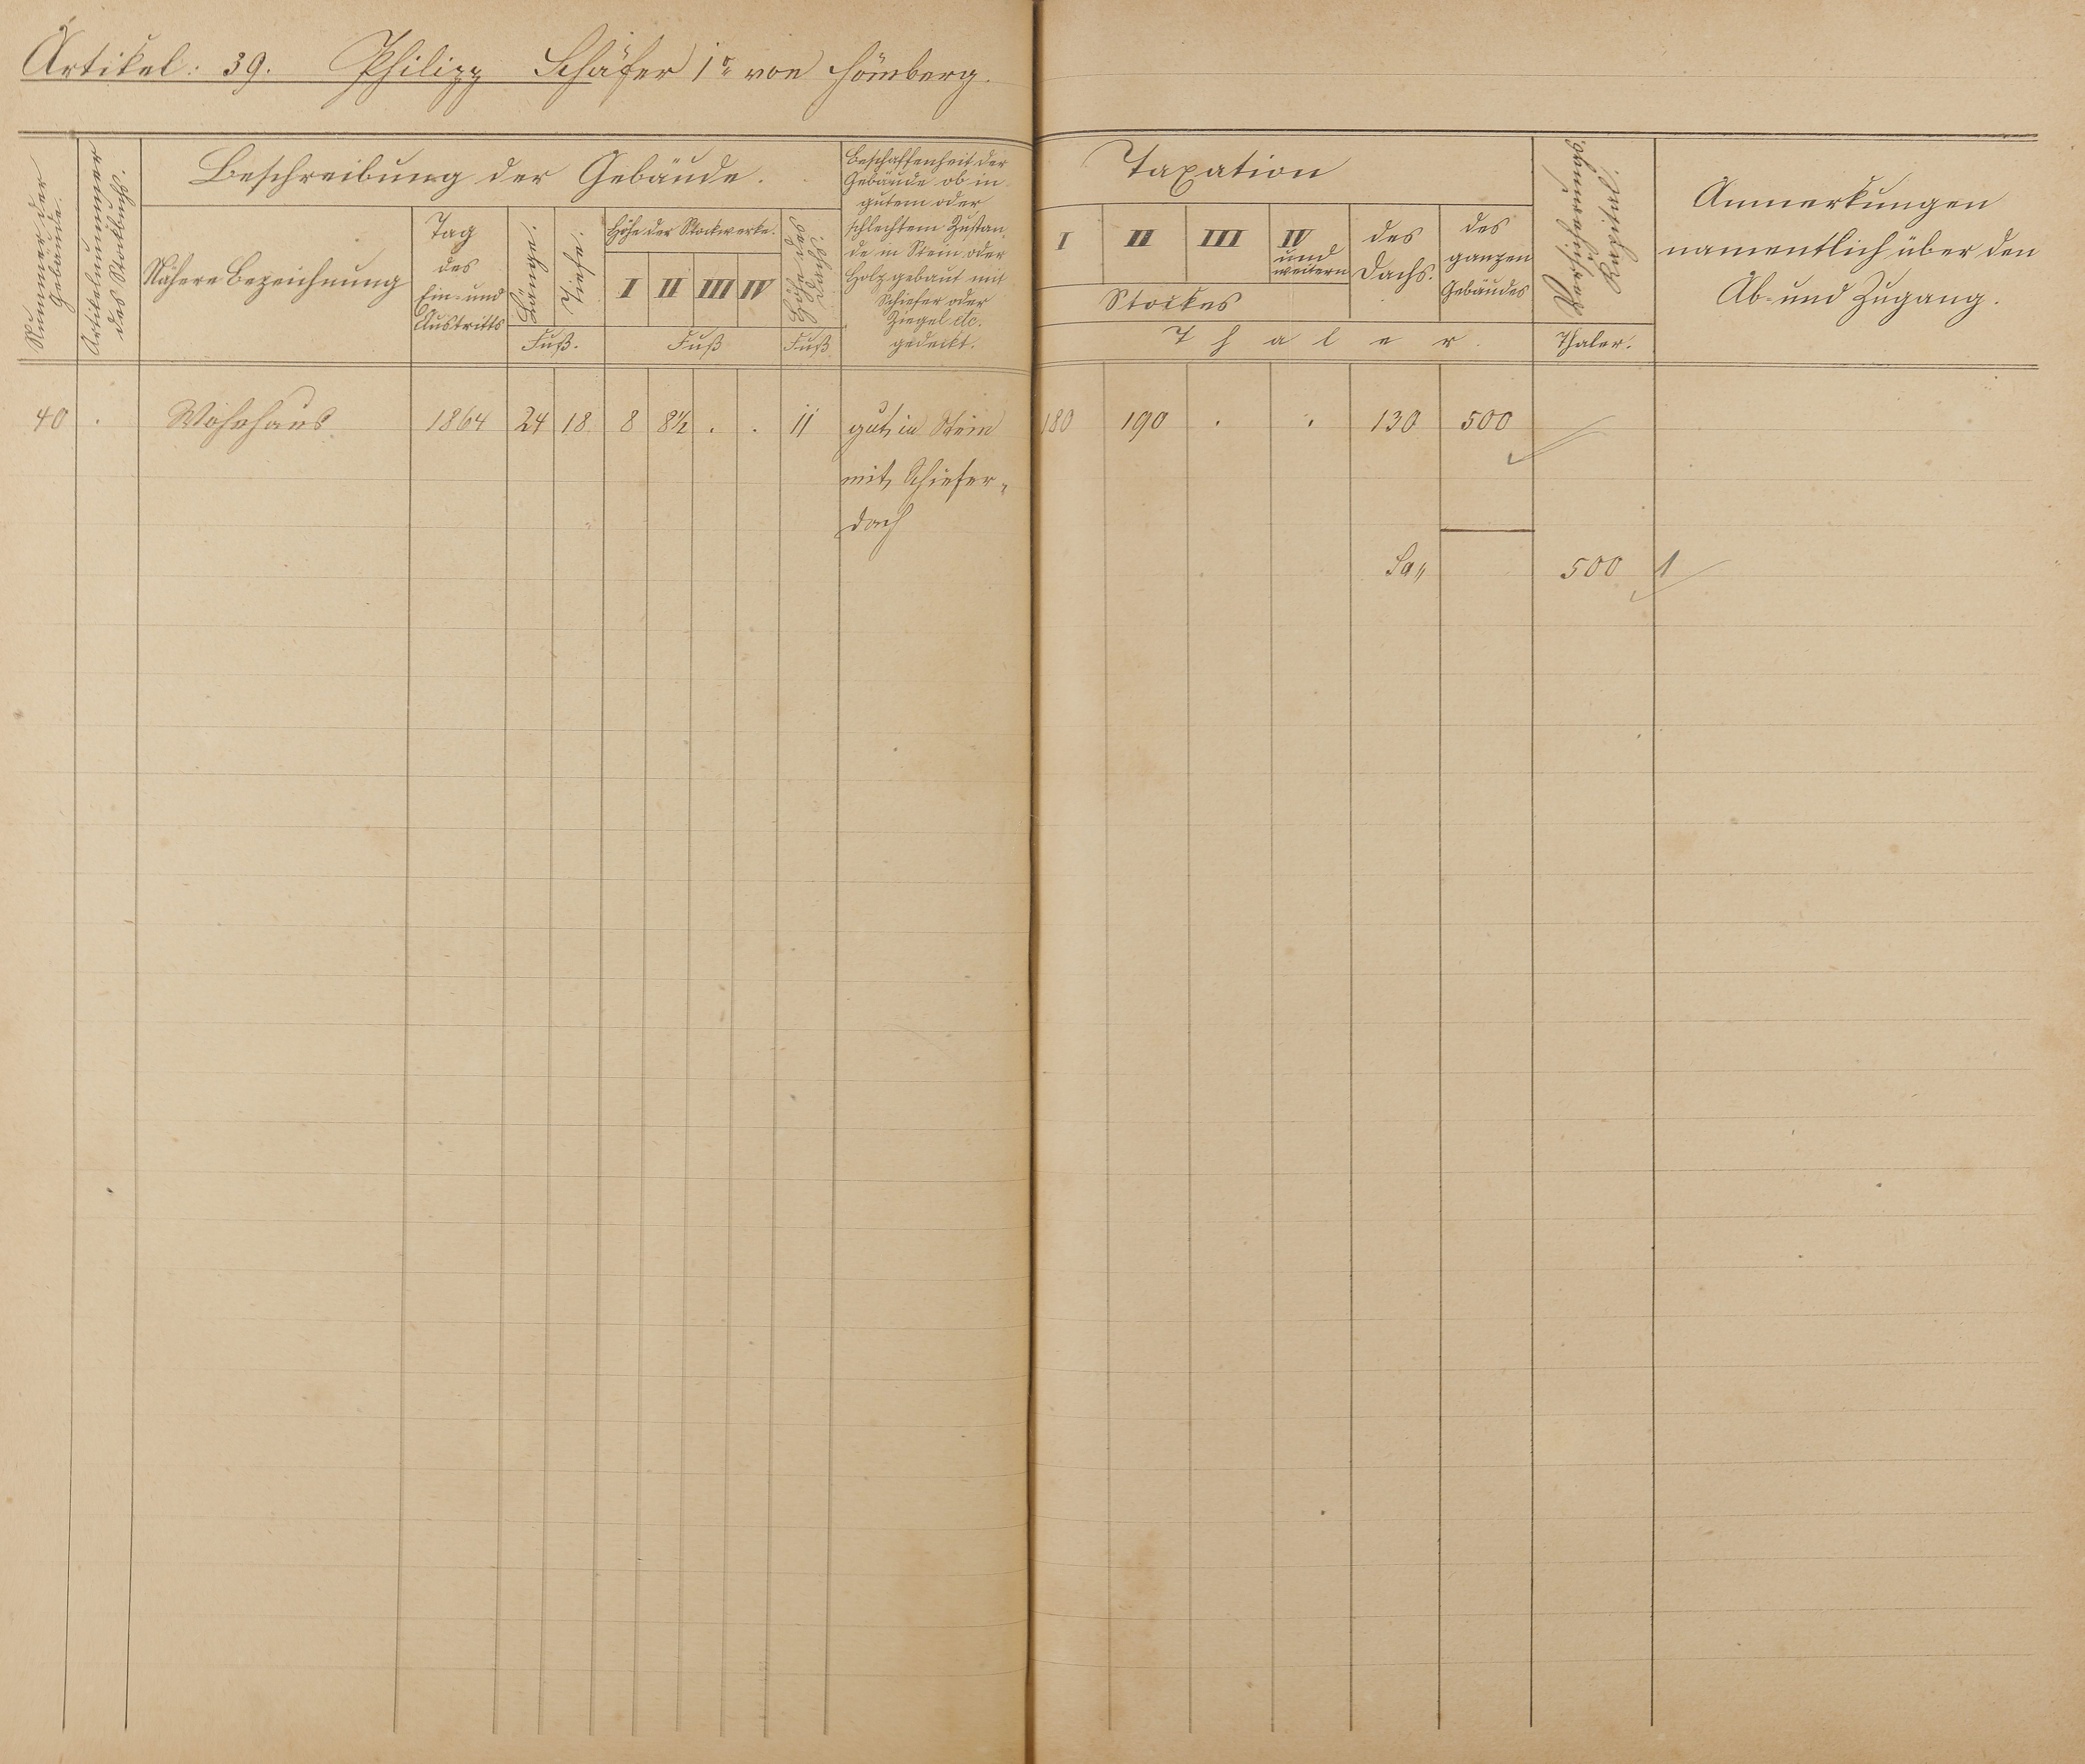 Artikel: 39. Philipp Schäfer 1r von Hömberg.
Nummer der
Gebäude.
Artikelnummer
des Stockbuchs.
Beschreibung der Gebäude.
Nähere Bezeichnung
Tag
des
Ein- und
Austritts
Länge.
Tiefe.
Fuß.
Höhe der Stockwerke.
I II III IV
Fuß
Höhe des
Dachs.
Fuß
Beschaffenheit der
Gebäude ob in
gutem oder
schlechtem Zustan-
de in Stein oder
Holz gebaut mit
Schiefer oder
Ziegel etc.
gedeckt.
Taxation
I II III IV
und
weitern
Stockes
des
Dachs.
des
ganzen
Gebäudes
Thaler.
Versicherungs-
Kapital.
Thaler.
Anmerkungen
namentlich über den
Ab- und Zugang.
40 . Wohnhaus. 1864 24 18 8 8½ . . 11 gut, in Stein 180 190 . . 130 500
mit Schiefer-
dach
Sa,, 500 1